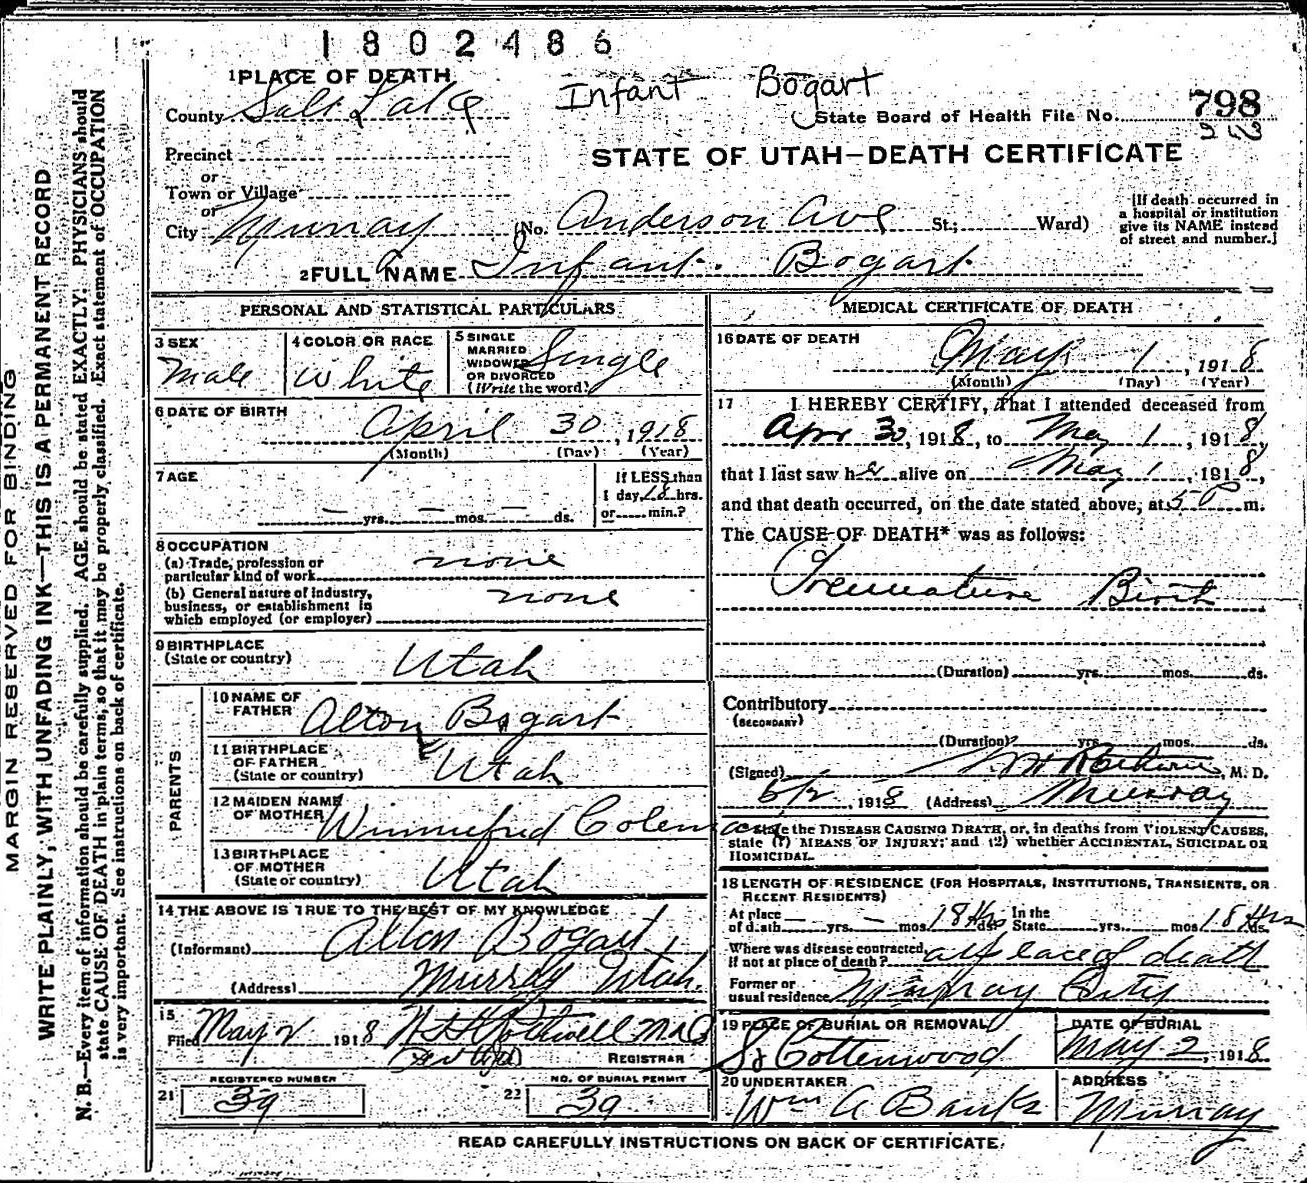 1802486
Infant Bogart
1 PLACE OF DEATH
County Salt Lake
State Board of Health File No. 798
Precinct
or
Town or Village
or
City Murray (No. Anderson Ave St; Ward)
STATE OF UTAH—DEATH CERTIFICATE
[If death occurred in
a hospital or institution
give its NAME instead
of street and number.]
2 FULL NAME Infant. Bogart
MARGIN RESERVED FOR BINDING
WRITE PLAINLY, WITH UNFADING INK—THIS IS A PERMANENT RECORD
N. B.—Every item of information should be carefully supplied. AGE should be stated EXACTLY. PHYSICIANS should
state CAUSE OF DEATH in plain terms, so that it may be properly classified. Exact statement of OCCUPATION
is very important. See instructions on back of certificate.
PERSONAL AND STATISTICAL PARTICULARS
3 SEX
Male
4 COLOR OR RACE
White
5 SINGLE
MARRIED
WIDOWED
OR DIVORCED
(Write the word)
Single
6 DATE OF BIRTH
April 30, 1918
(Month) (Day) (Year)
7 AGE
— yrs. — mos. — ds.
If LESS than
1 day, 18 hrs.
or min.?
8 OCCUPATION
(a) Trade, profession or
particular kind of work none
(b) General nature of industry,
business, or establishment in
which employed (or employer) none
9 BIRTHPLACE
(State or country) Utah
PARENTS
10 NAME OF
FATHER Alton Bogart
11 BIRTHPLACE
OF FATHER
(State or country) Utah
12 MAIDEN NAME
OF MOTHER Winnifred Coleman
13 BIRTHPLACE
OF MOTHER
(State or country) Utah
14 THE ABOVE IS TRUE TO THE BEST OF MY KNOWLEDGE
(Informant) Alton Bogart
(Address) Murray Utah.
15
Filed May 2 1918
REGISTRAR
REGISTERED NUMBER
21 39
NO. OF BURIAL PERMIT
22 39
MEDICAL CERTIFICATE OF DEATH
16 DATE OF DEATH
May 1, 1918
(Month) (Day) (Year)
17 I HEREBY CERTIFY, That I attended deceased from
Apr 30, 1918, to May 1, 1918,
that I last saw h alive on May 1, 1918,
and that death occurred, on the date stated above, at 5 P m.
The CAUSE OF DEATH* was as follows:
Premature Birth
(Duration) yrs. mos. ds.
Contributory
(SECONDARY)
(Duration) yrs. mos. ds.
(Signed) M. D.
, 1918 (Address) Murray
*State the DISEASE CAUSING DEATH, or, in deaths from VIOLENT CAUSES,
state (1) MEANS OF INJURY; and (2) whether ACCIDENTAL, SUICIDAL OR
HOMICIDAL.
18 LENGTH OF RESIDENCE (FOR HOSPITALS, INSTITUTIONS, TRANSIENTS, OR
RECENT RESIDENTS)
At place
of death — yrs. — mos. 18 Hrs ds. In the
State yrs. mos. 18 Hrs ds.
Where was disease contracted,
if not at place of death? at place of death
Former or
usual residence Murray City
19 PLACE OF BURIAL OR REMOVAL
So Cottonwood
DATE OF BURIAL
May 2, 1918
20 UNDERTAKER
Wm A Banks
ADDRESS
Murray
READ CAREFULLY INSTRUCTIONS ON BACK OF CERTIFICATE.